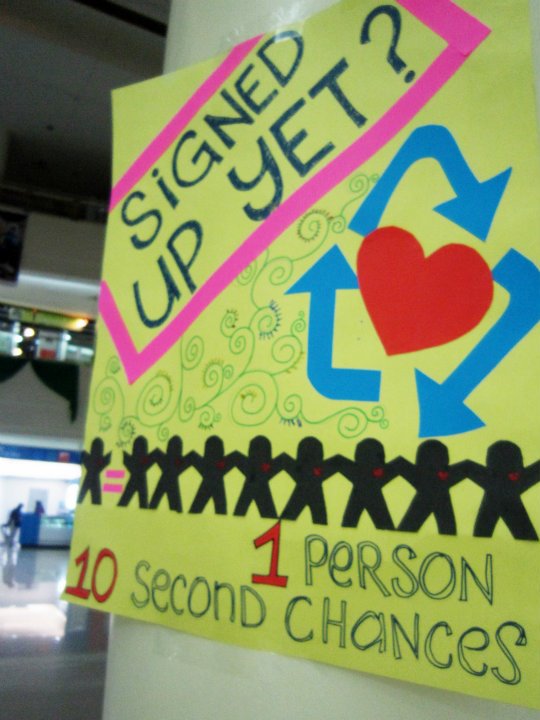 SiGNED
UP YET?
=
1 PERSON
10 Second CHANCES